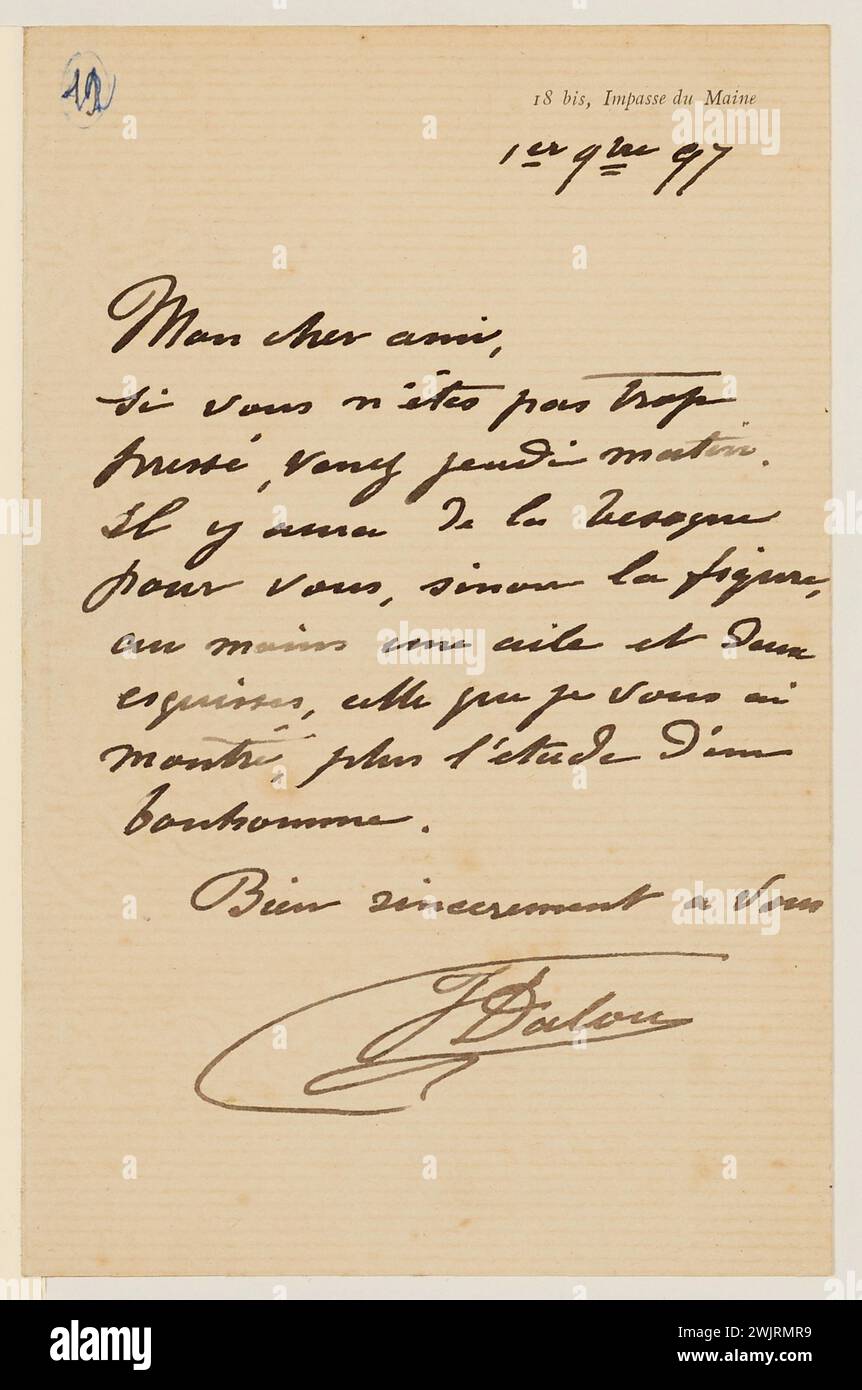 12
18 bis, Impasse du Maine
1er 9bre 97
Mon cher ami,
si vous n'êtes pas trop
pressé, venez jeudi matin.
Il y aura de la besogne
pour vous, sinon la figure,
au moins une aile et deux
esquisses, celle que je vous ai
montré, plus l'étude d'un
bonhomme.
Bien sincerement a vous
J Dalou
alamy
Image ID: 2WJRMR9
www.alamy.com